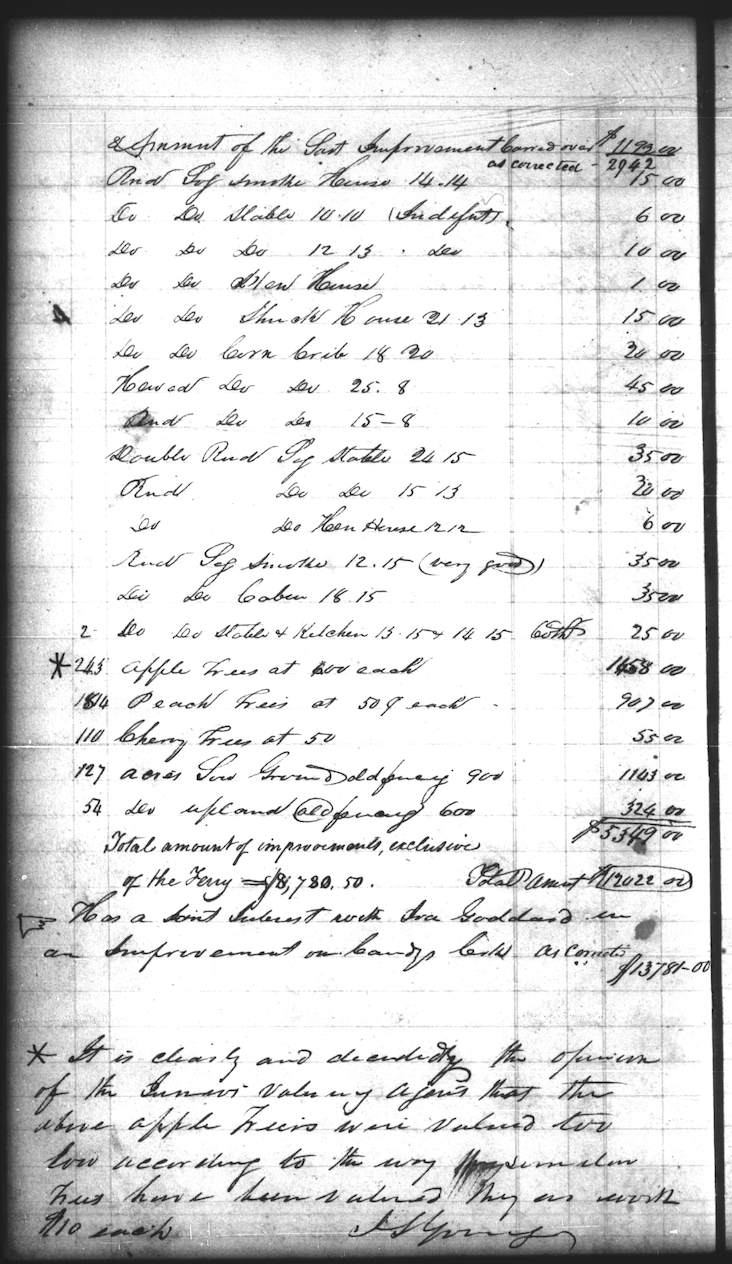 Amount of the Last Improvement Carred over $ 1193 00
as corrected - 2942
Rnd Log Smoke House 14.14 15 00
Do Do Stable 10.10 (Indift) 6 00
Do Do Do 12 13 . Do 10 00
Do Do Hen House 1 00
Do Do Shuck House 21.13 15 00
Do Do Corn Crib 18 20 20 00
Hewed Do Do 25. 8 45 00
Rnd Do Do 15-8 10 00
Double Rnd Log Stable 24 15 35 00
Rnd Do Do 15 13 20 00
Do Do Hen House 12 12 6 00
Rnd Log Smoke 12.15 (very good) 35 00
Do Do Cabin 18.15 35 00
2 Do Do Stable & Kitchen 13.15 & 14 15 Both 25 00
* 243 apple Trees at 600 each 1458 00
1814 Peach Trees at 50 ¢ each - 907 00
110 Cherry Trees at 50 55 00
127 acres Low Ground old fencing 900 1143 00
54 Do upland old fencing 600 324 00
$5349 00
Total amount of improvements, exclusive
of the Ferry = $8,780.50. Total Amut $12022 00
Has a Joint Interest with Ira Goddard in
an Improvement on Candys Creek As Corrected
$13781-00
* It is clearly and decidedly the opinion
of the valuing Agents that the
above apple Trees were valued too
low according to the way similar
Trees have been valued they are worth
$10 each J S Young